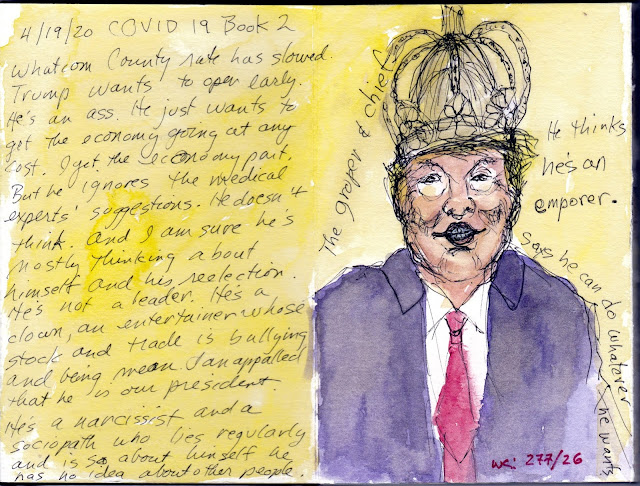 4/19/20 COVID 19 Book 2
Whatcom County rate has slowed.
Trump wants to open early.
He's an ass. He just wants to
get the economy going at any
cost. I get the economy part.
But he ignores the medical
experts' suggestions. He doesn't
think. and I am sure he's
mostly thinking about
himself and his reelection.
He's not a leader. He's a
clown, an entertainer whose
stock and trade is bullying
and being mean. I am appalled
that he is our president.
He's a narcissist and a
sociopath who lies regularly
and is so about himself he
has no idea about other people.
The groper & chief
He thinks
he's an
emporer.
Says he can do whatever he wants
wc: 277/26